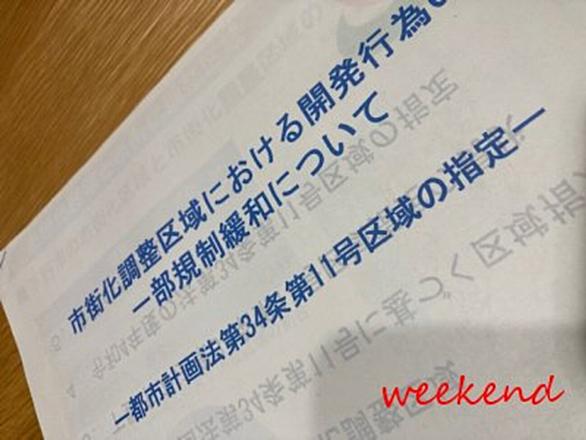 市街化調整区域における開発行為の
一部規制緩和について
―都市計画法第34条第11号区域の指定―
weekend